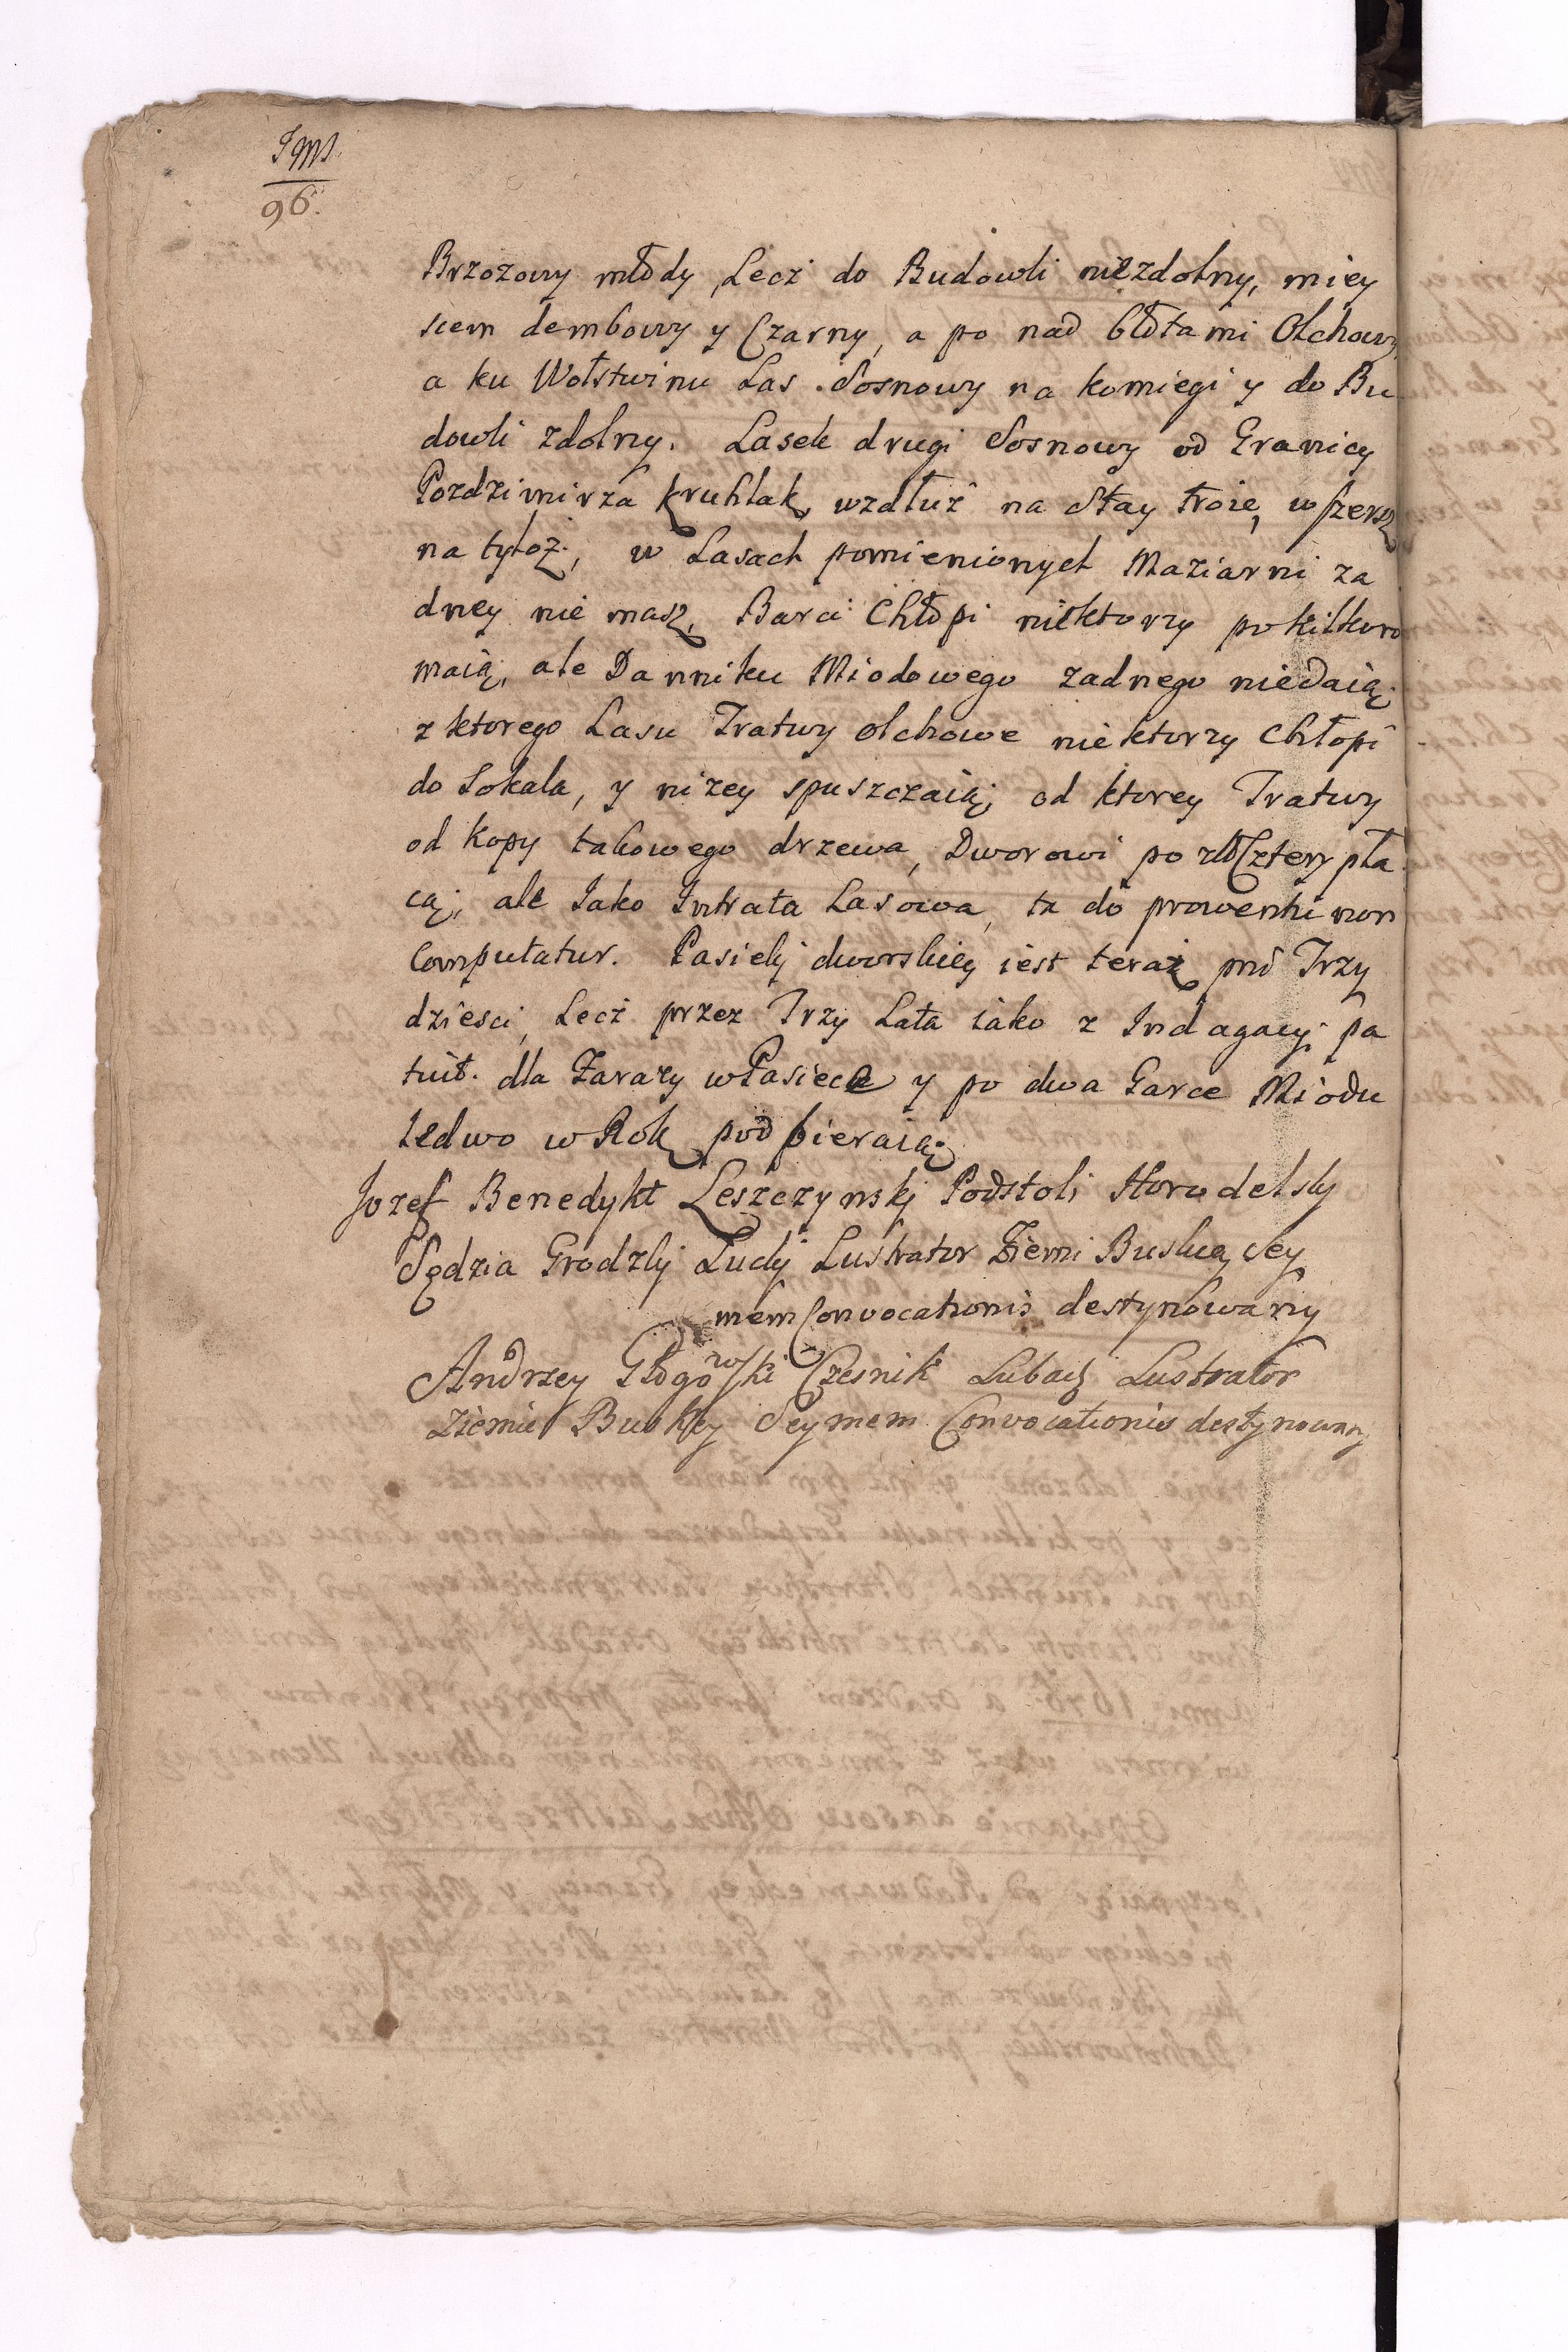 96.
Brzozowy młody, Lecz do Budowli niezdolny, miey
scem dembowy y Czarny, a po nad błotami Olchowy
a ku Wolstwinu Las Sosnowy na komiegi y do Bu
dowli zdolny. Lasek drugi Sosnowy od Granicy
Pozdzimirza Kruhlak, wzdłuż na Stay troie, w szersz
na tyloż, w Lasach pomienionych Maziarni za
dney nie masz, Barci Chłopi niektorzy po kilkoro
maią, ale Danniku Miodowego zadnego niedaią.
z ktorego Lasu Tratwy olchowe niektorzy Chłopi
do Sokala, y nizey spuszczaią, od ktorey Tratwy
od kopy takowego drzewa, Dworowi po zł Cztery pła
cą, ale Iako Intrata Lasowa, ta do prowentu non
Computatur. Pasieki dworskiey iest teraz pni Trzy
dziesci, Lecz przez Trzy Lata iako z Indagacyi pa
tuit. dla Zarazy w Pasiece y po dwa Garce Miodu
ledwo w Rok podbieraią.
Jozef Benedykt Leszczynskj Podstoli Horodelsky
Sędzia Grodzky Lustrator Ziemi Buskiey Sey
mem Convocationis destynowany
Andrzey Głogowski Czesnik Lubacz Lustrator
Ziemie Buskiey Seymem Convocationis destynowany